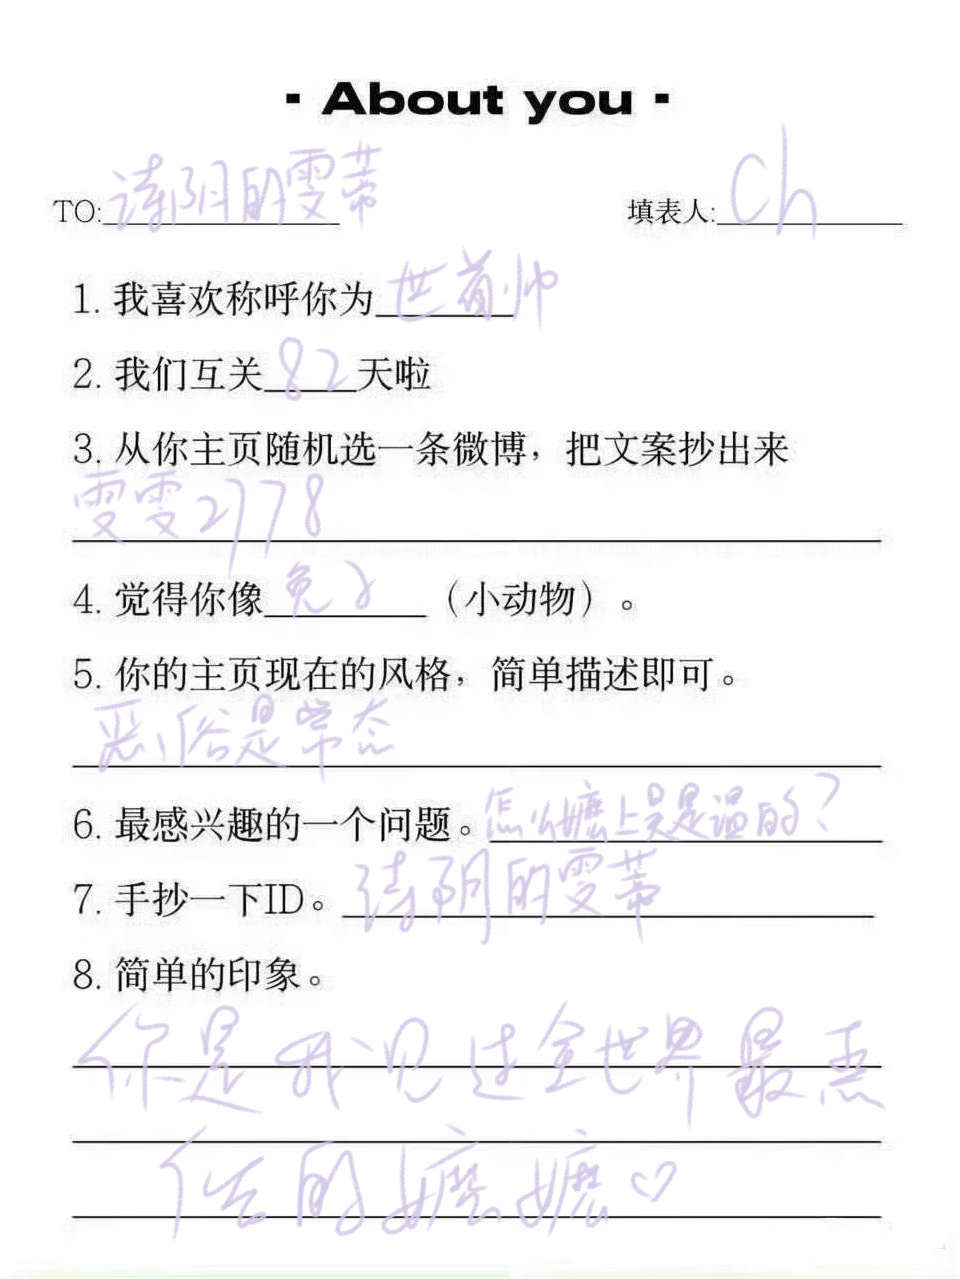 - About you -
TO: 涛阴的雯蒂 填表人: Ch
1. 我喜欢称呼你为世首帅
2. 我们互关82天啦
3. 从你主页随机选一条微博，把文案抄出来
雯雯2178
4. 觉得你像兔子（小动物）。
5. 你的主页现在的风格，简单描述即可。
恶俗是常态
6. 最感兴趣的一个问题。怎么嬷上吴是温的？
7. 手抄一下ID。涛阴的雯蒂
8. 简单的印象。
你是我见过全世界最恶
俗的嬷嬷♡